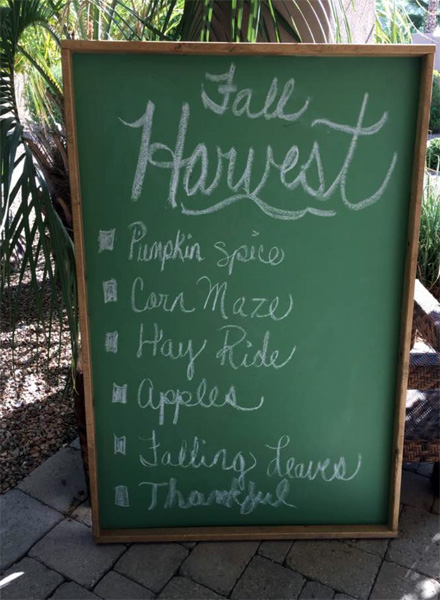 Fall
Harvest
Pumpkin spice
Corn Maze
Hay Ride
Apples
Falling Leaves
Thankful